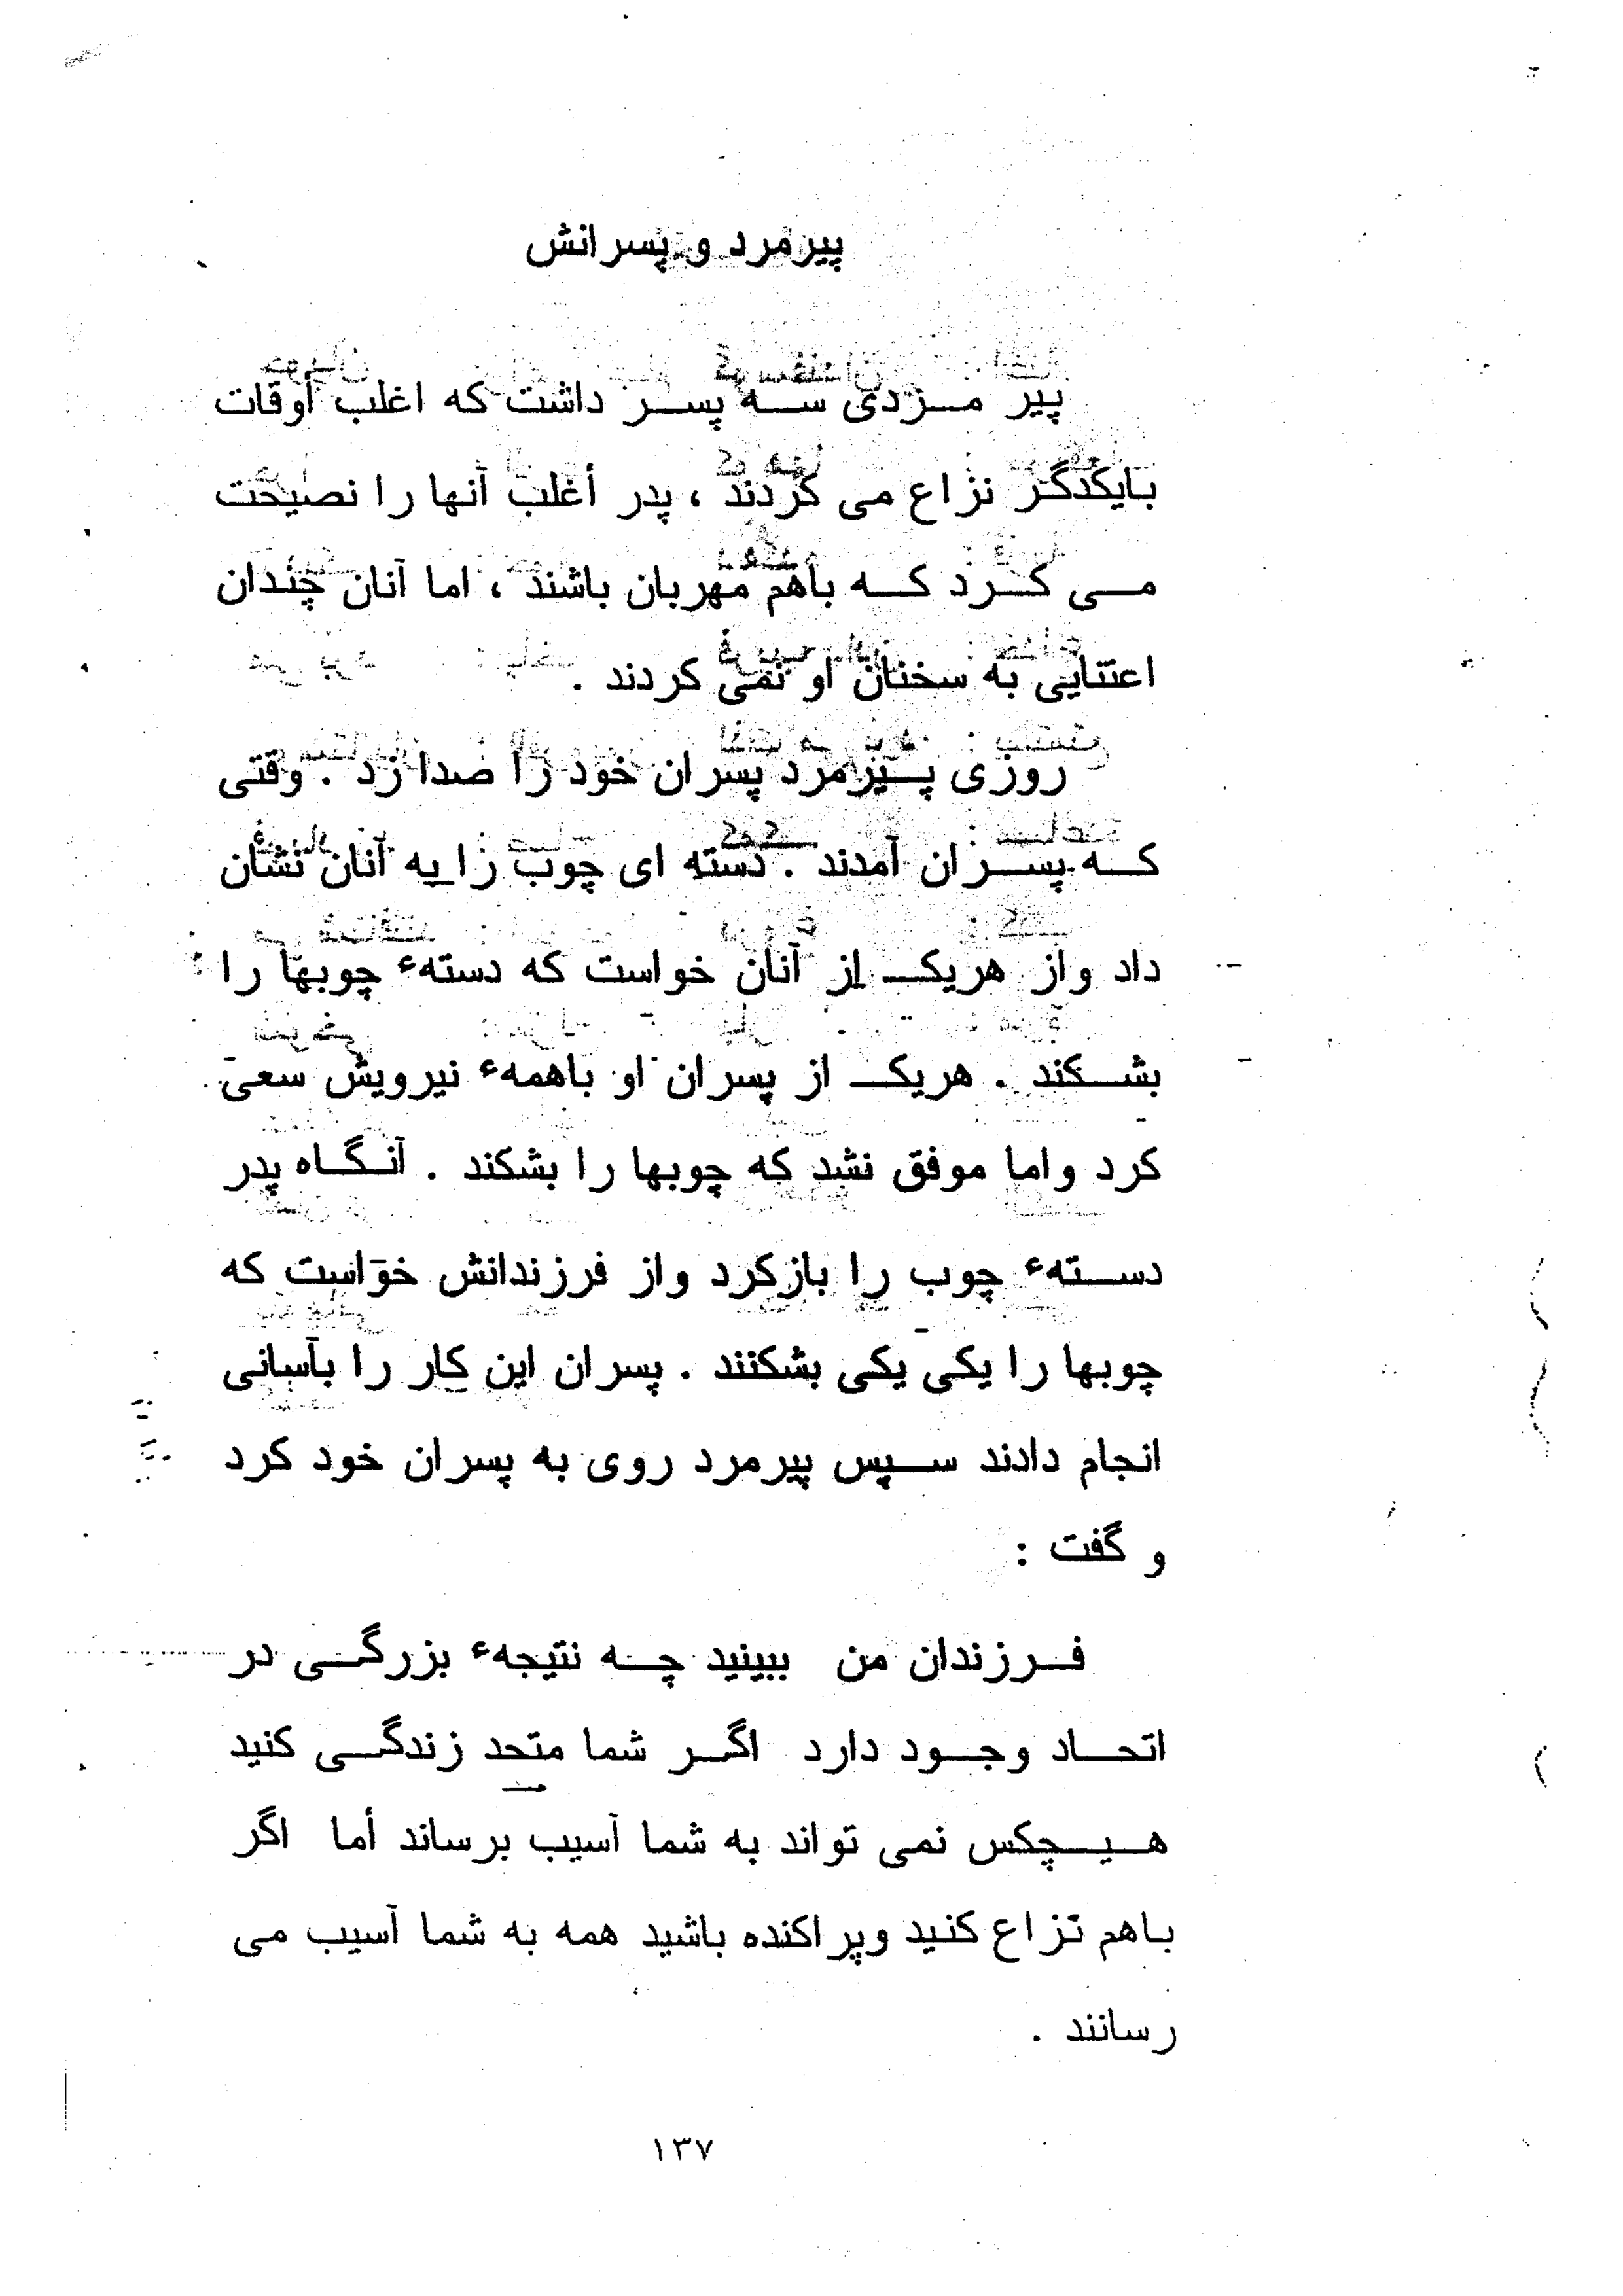 پیرمرد و پسرانش
پیر مردی سه پسر داشت که اغلب أوقات
بایکدگر نزاع می کردند ، پدر أغلب آنها را نصیحت
می کرد که باهم مهربان باشند ، اما آنان چندان
اعتنایی به سخنان او نمی کردند .
روزی پیرمرد پسران خود را صدا زد . وقتی
که پسران آمدند . دسته ای چوب را به آنان نشان
داد واز هریک از آنان خواست که دستهء چوبها را
بشکند . هریک از پسران او باهمهء نیرویش سعی
کرد واما موفق نشد که چوبها را بشکند . آنگاه پدر
دستهء چوب را بازکرد واز فرزندانش خواست که
چوبها را یکی یکی بشکنند . پسران این کار را بآسانی
انجام دادند سپس پیرمرد روی به پسران خود کرد
و گفت :
فرزندان من ببینید چه نتیجهء بزرگی در
اتحاد وجود دارد اگر شما متحد زندگی کنید
هیچکس نمی تواند به شما آسیب برساند أما اگر
باهم نزاع کنید وپراکنده باشید همه به شما آسیب می
رسانند .
١٣٧